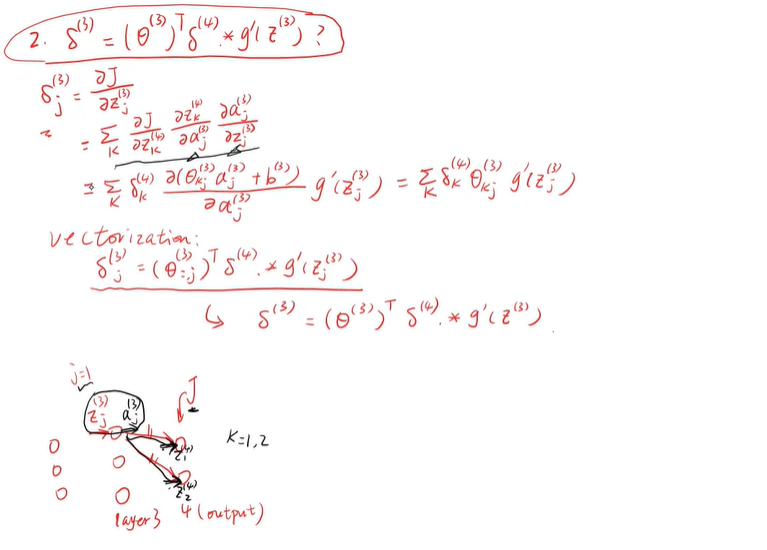 2. δ^(3) = (θ^(3))^T δ^(4) .* g'(z^(3)) ?
δ_j^(3) = ∂J/∂z_j^(3)
= Σ_K ∂J/∂z_K^(4) ∂z_K^(4)/∂a_j^(3) ∂a_j^(3)/∂z_j^(3)
= Σ_K δ_K^(4) ∂(θ_Kj^(3) a_j^(3) + b^(3))/∂a_j^(3) g'(z_j^(3)) = Σ_K δ_K^(4) θ_Kj^(3) g'(z_j^(3))
vectorization:
δ_j^(3) = (θ_:j^(3))^T δ^(4) .* g'(z_j^(3))
↳ δ^(3) = (θ^(3))^T δ^(4) .* g'(z^(3)).
j=1
J
z_j^(3) a_j^(3)
K=1,2
z_1^(4)
z_2^(4)
layer3 4(output)